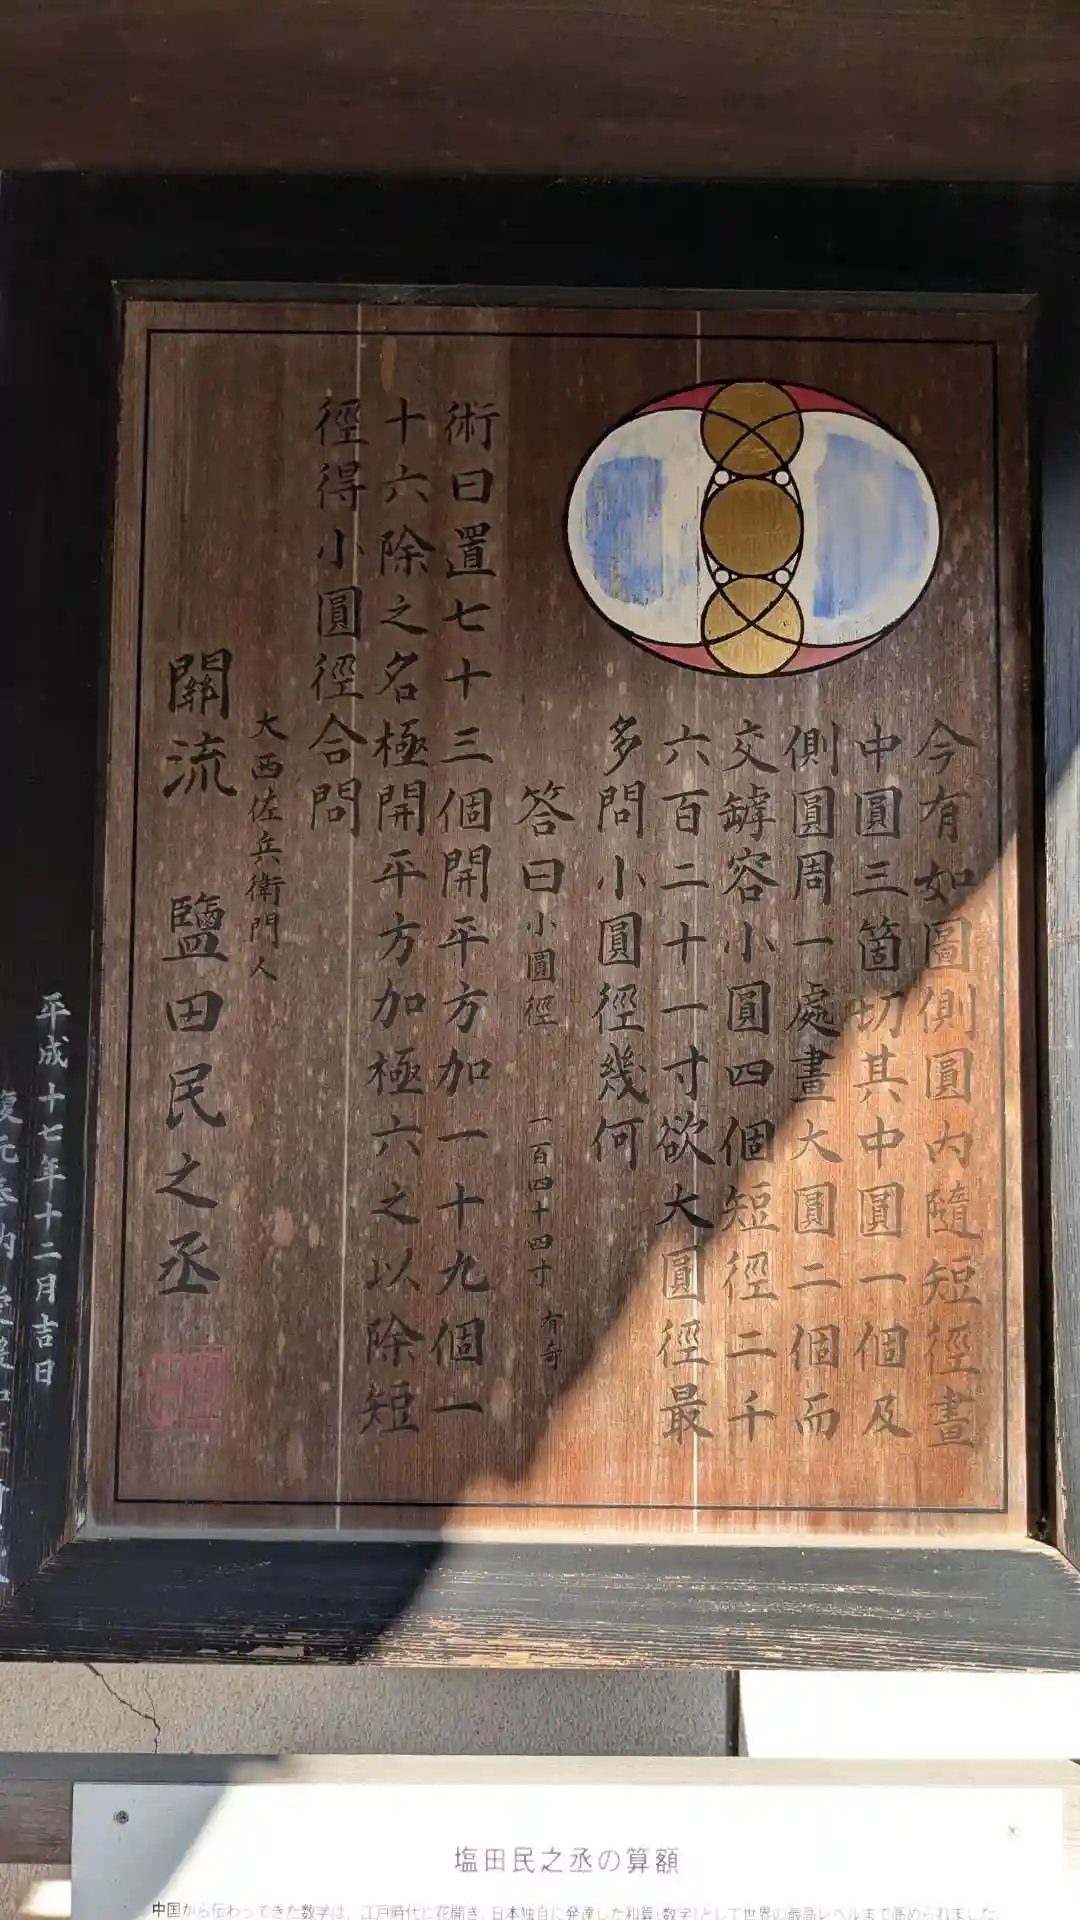 今有如圖側圓内隨短徑畫
中圓三箇切其中圓一個及
側圓周一處畫大圓二個而
交罅容小圓四個短徑二千
六百二十一寸欲大圓徑最
多問小圓徑幾何
答曰小圓徑 一百四十四寸 有奇
術曰置七十三個開平方加一十九個一
十六除之名極開平方加極六之以除短
徑得小圓徑合問
大西佐兵衛門人
關流 鹽田民之丞
平成十七年十二月吉日
復元奉納
塩田民之丞の算額
中国から伝わってきた数学は、江戸時代に花開き、日本独自に発達した和算(数学)として世界の最高レベルまで高められました。